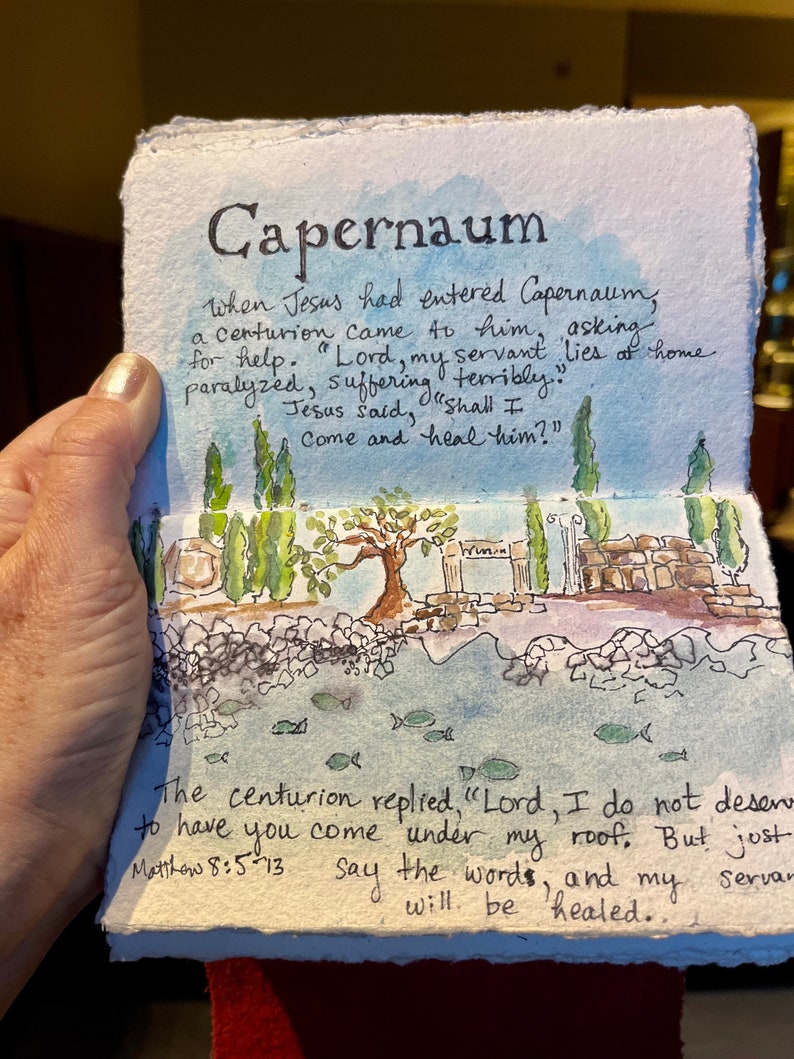 Capernaum
When Jesus had entered Capernaum,
a centurion came to him, asking
for help. "Lord, my servant lies at home
paralyzed, suffering terribly."
Jesus said, "Shall I
come and heal him?"
The centurion replied, "Lord, I do not deserv
to have you come under my roof. But just
Matthew 8:5-13 say the words, and my servan
will be healed..